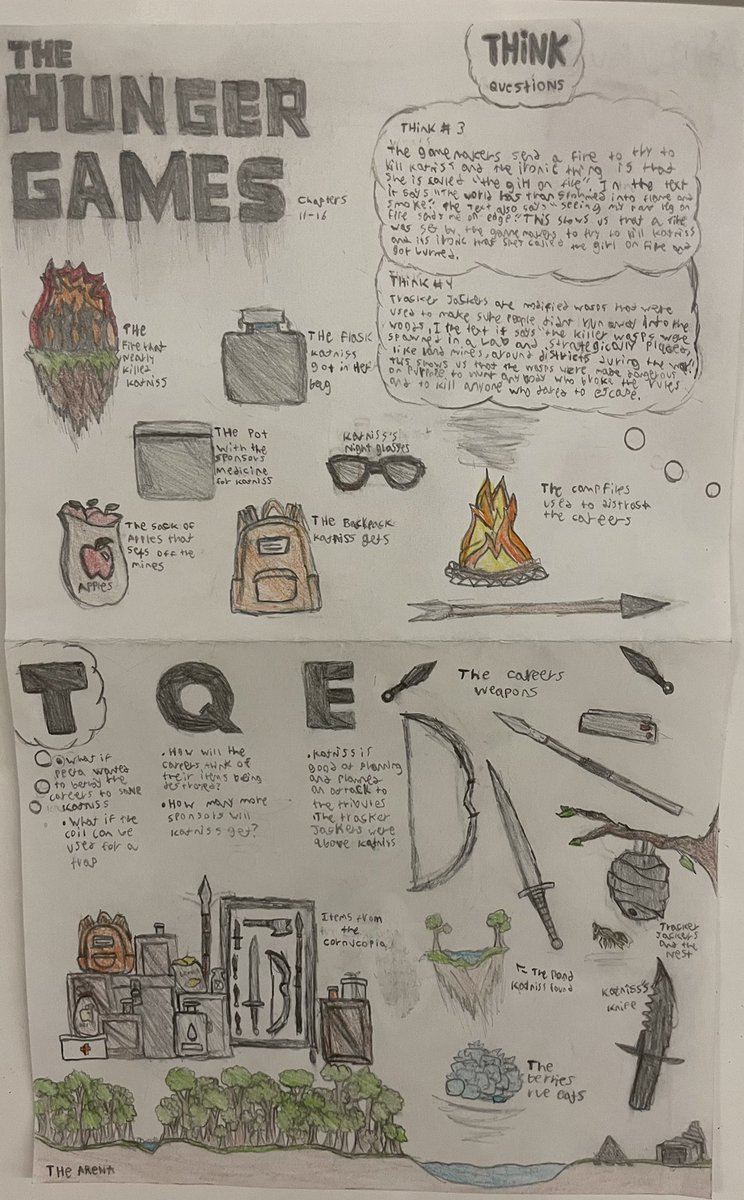 THE
HUNGER
GAMES
Chapters
11-16
THINK
Questions
THINK # 3
The gamemakers send a fire to try to
kill Katniss and the ironic thing is that
she is called "the girl on fire". In the text
it says "The world has transformed into flame and
smoke". The text also says "seeing my
fire sends me on edge". This shows us that a fire
was set by the gamemakers to try to kill Katniss
and its ironic that she called the girl on fire and
got burned.
THINK #4
Tracker Jackers are modified wasps that were
used to make sure people didnt run away into the
woods. I the text it says "the killer wasps were
spawned in a lab and strategically placed,
like land mines, around districts during the
This shows us that the wasps were made dangerous
on purpose to hunt anybody who broke the rules
and to kill anyone who dared to escape.
THE
fire that
nearly
killed
Katniss
THE Flask
Katniss
got in her
bag
THE Pot
with the
sponsors
medicine
for Katniss
Katniss's
Night glasses
The sack of
Apples that
sets off the
mines
APPles
THE Backpack
Katniss gets
The campfires
used to distrast
the careers
T Q E
• What if
peeta wanted
to betray the
careers to save
Katniss
• What if the
coil can be
used for a
trap
• How will the
careers think of
their items being
destroyed?
• How many more
sponsors will
Katniss get?
• Katniss is
good at planning
and planned
an attack to
the tributes
• The tracker
Jackers were
above Katniss
The careers
weapons
Items from
the
cornucopia
The Pond
Katniss found
Tracker
Jackers
and the
nest
Katniss's
Knife
The
berries
rue eats
THE ARENA